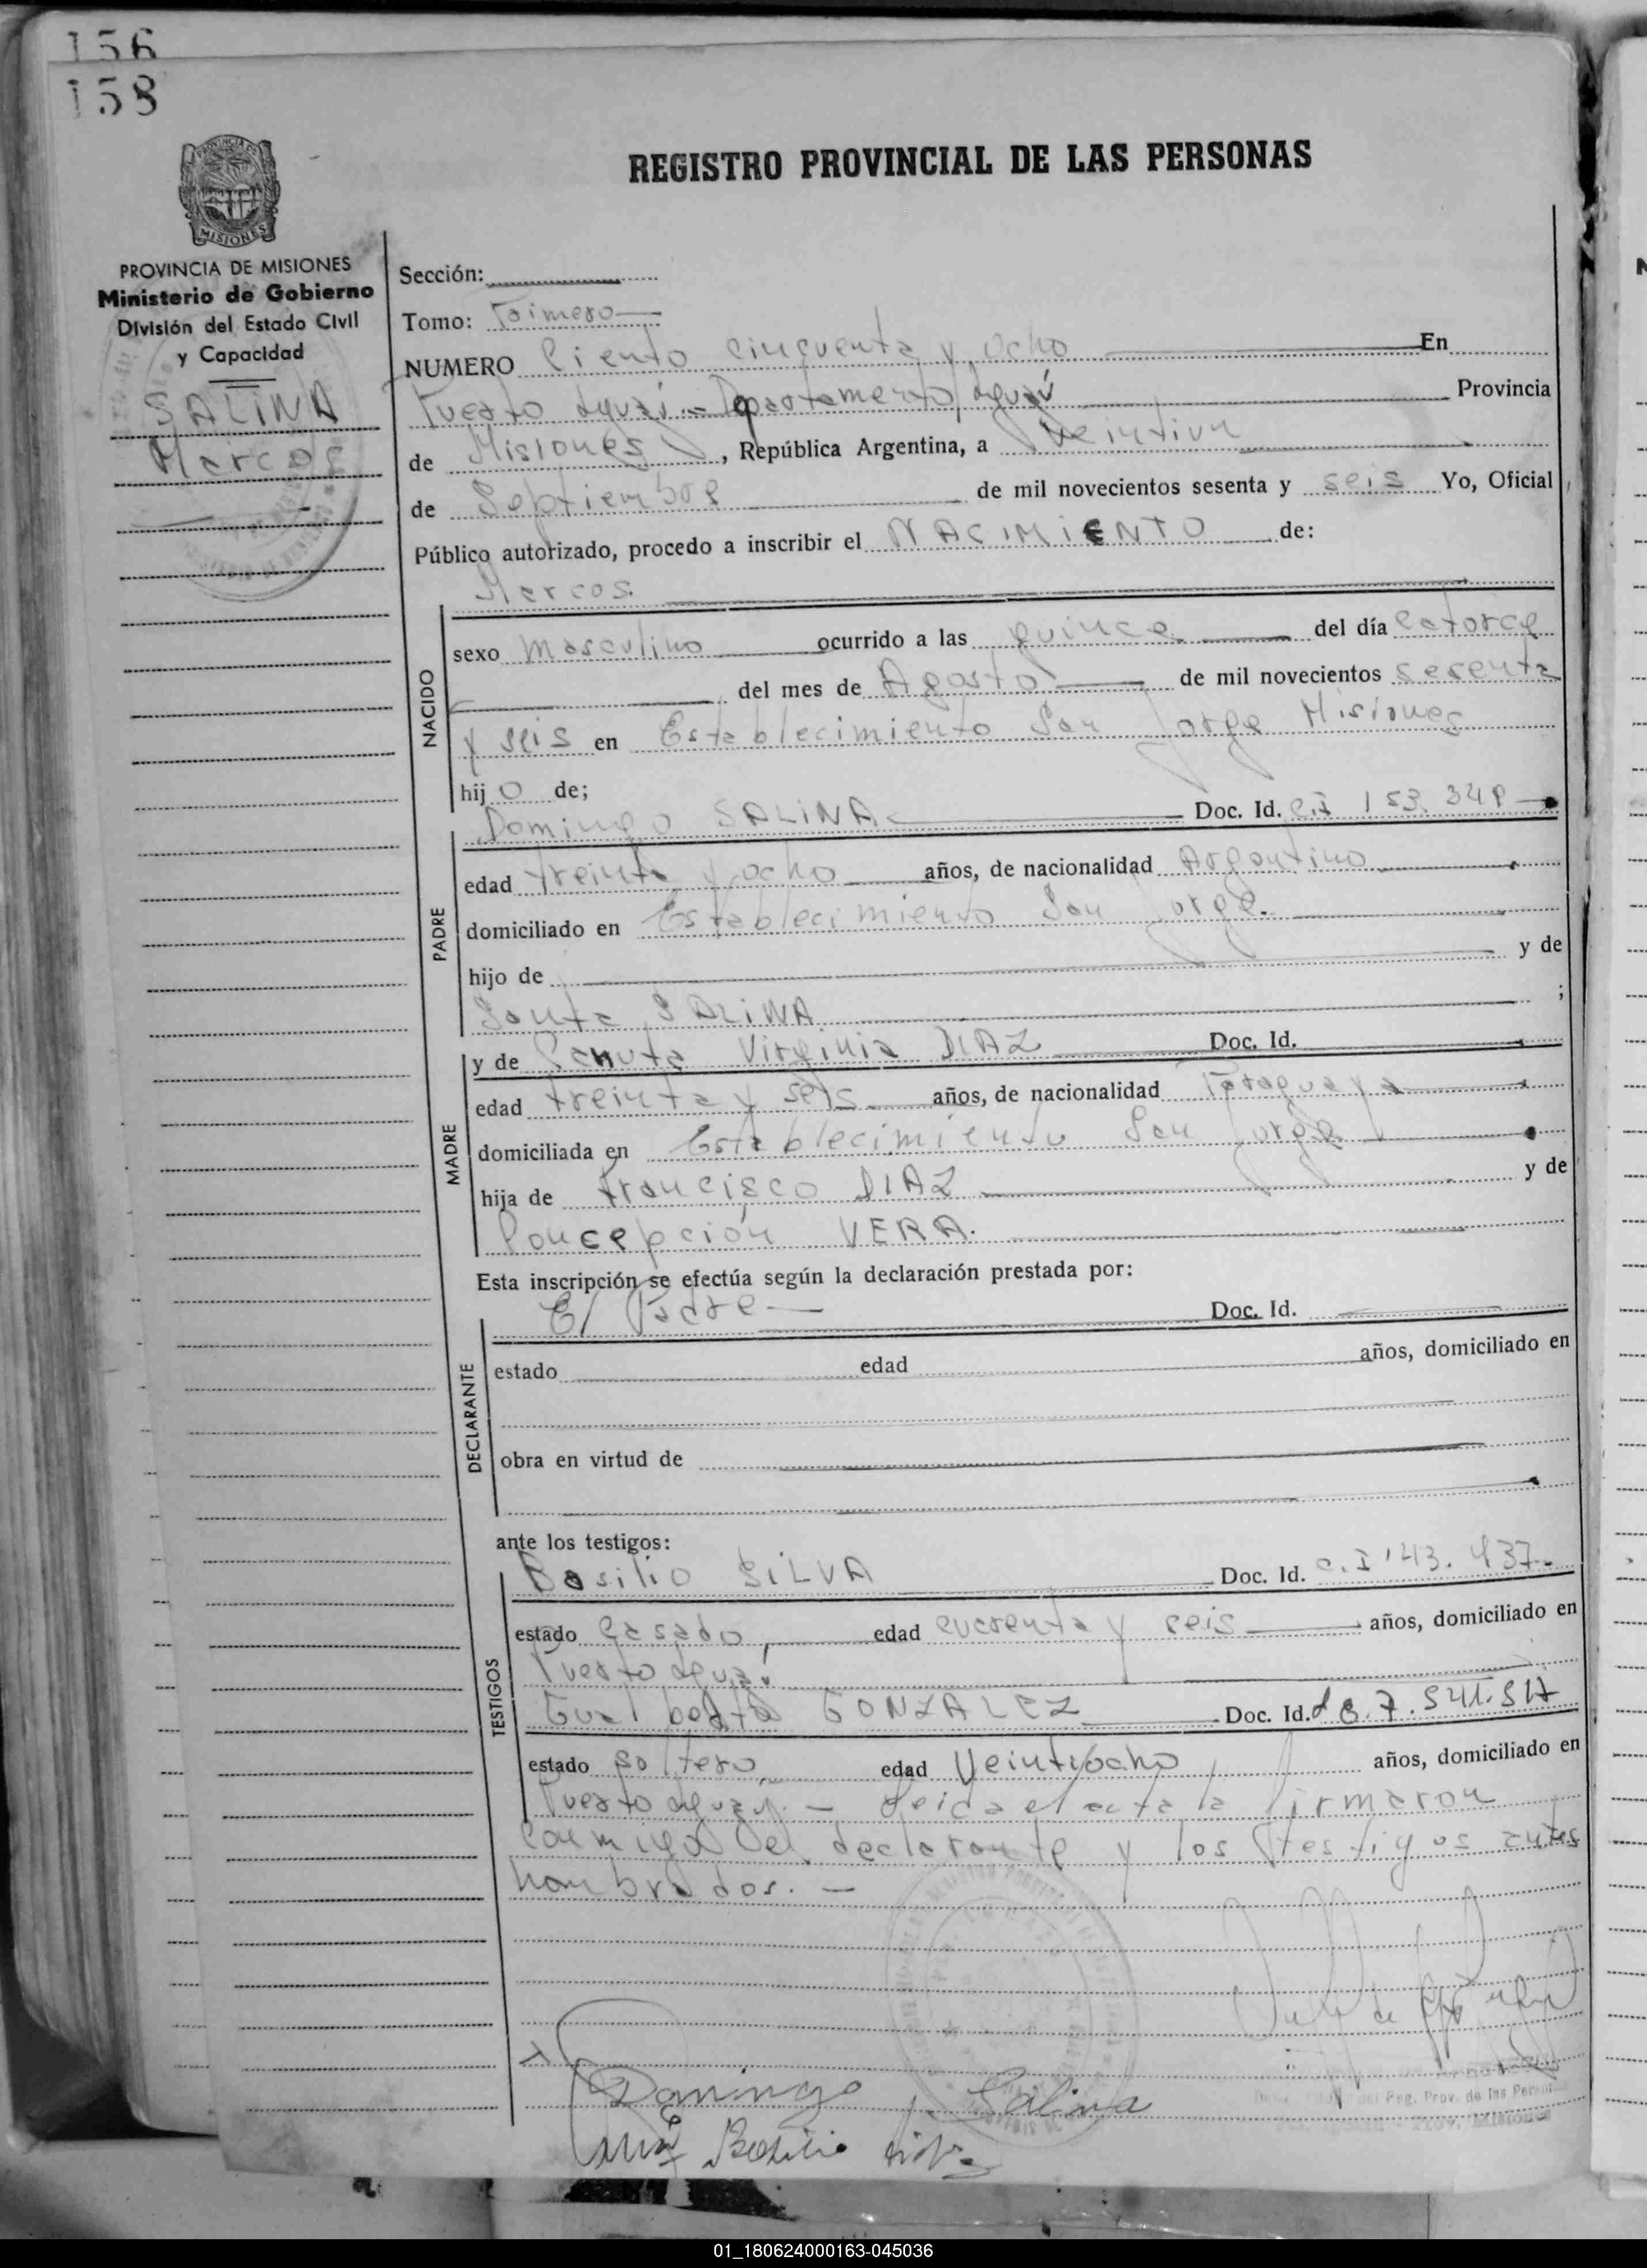 156
158
REGISTRO PROVINCIAL DE LAS PERSONAS
MISIONES
PROVINCIA DE MISIONES
Ministerio de Gobierno
División del Estado Civil
y Capacidad
SALINA
Marcos
Sección:
Tomo: Primero
NUMERO Ciento cincuenta y ocho En
Puerto Iguazú - Departamento Iguazú Provincia
de Misiones, República Argentina, a Veintiun
de Septiembre de mil novecientos sesenta y seis Yo, Oficial
Público autorizado, procedo a inscribir el NACIMIENTO de:
Marcos.
NACIDO
sexo masculino ocurrido a las quince del día catorce
del mes de Agosto de mil novecientos sesenta
y seis en Establecimiento San Jorge Misiones
hijo de;
Domingo SALINA Doc. Id. C.I 153.348
PADRE
edad treinta y ocho años, de nacionalidad Argentino
domiciliado en Establecimiento San Jorge.
hijo de y de
Santa SALINA ;
MADRE
y de Canuta Virginia DIAZ Doc. Id.
edad treinta y seis años, de nacionalidad Paraguaya
domiciliada en Establecimiento San Jorge
hija de Francisco DIAZ y de
Concepción VERA.
Esta inscripción se efectúa según la declaración prestada por:
El Padre Doc. Id.
DECLARANTE
estado edad años, domiciliado en
obra en virtud de
ante los testigos:
Basilio SILVA Doc. Id. C.I 143.437.
TESTIGOS
estado Casado, edad cuarenta y seis años, domiciliado en
Puerto Iguazú
Gualberto GONZALEZ Doc. Id. 7.541.517
estado soltero, edad Veintiocho años, domiciliado en
Puerto Iguazú. - Leida el acta la firmaron
conmigo el declarante y los testigos antes
nombrados. -
Domingo Salina
Basilio Silva
del Reg. Prov. de las
01_180624000163-045036